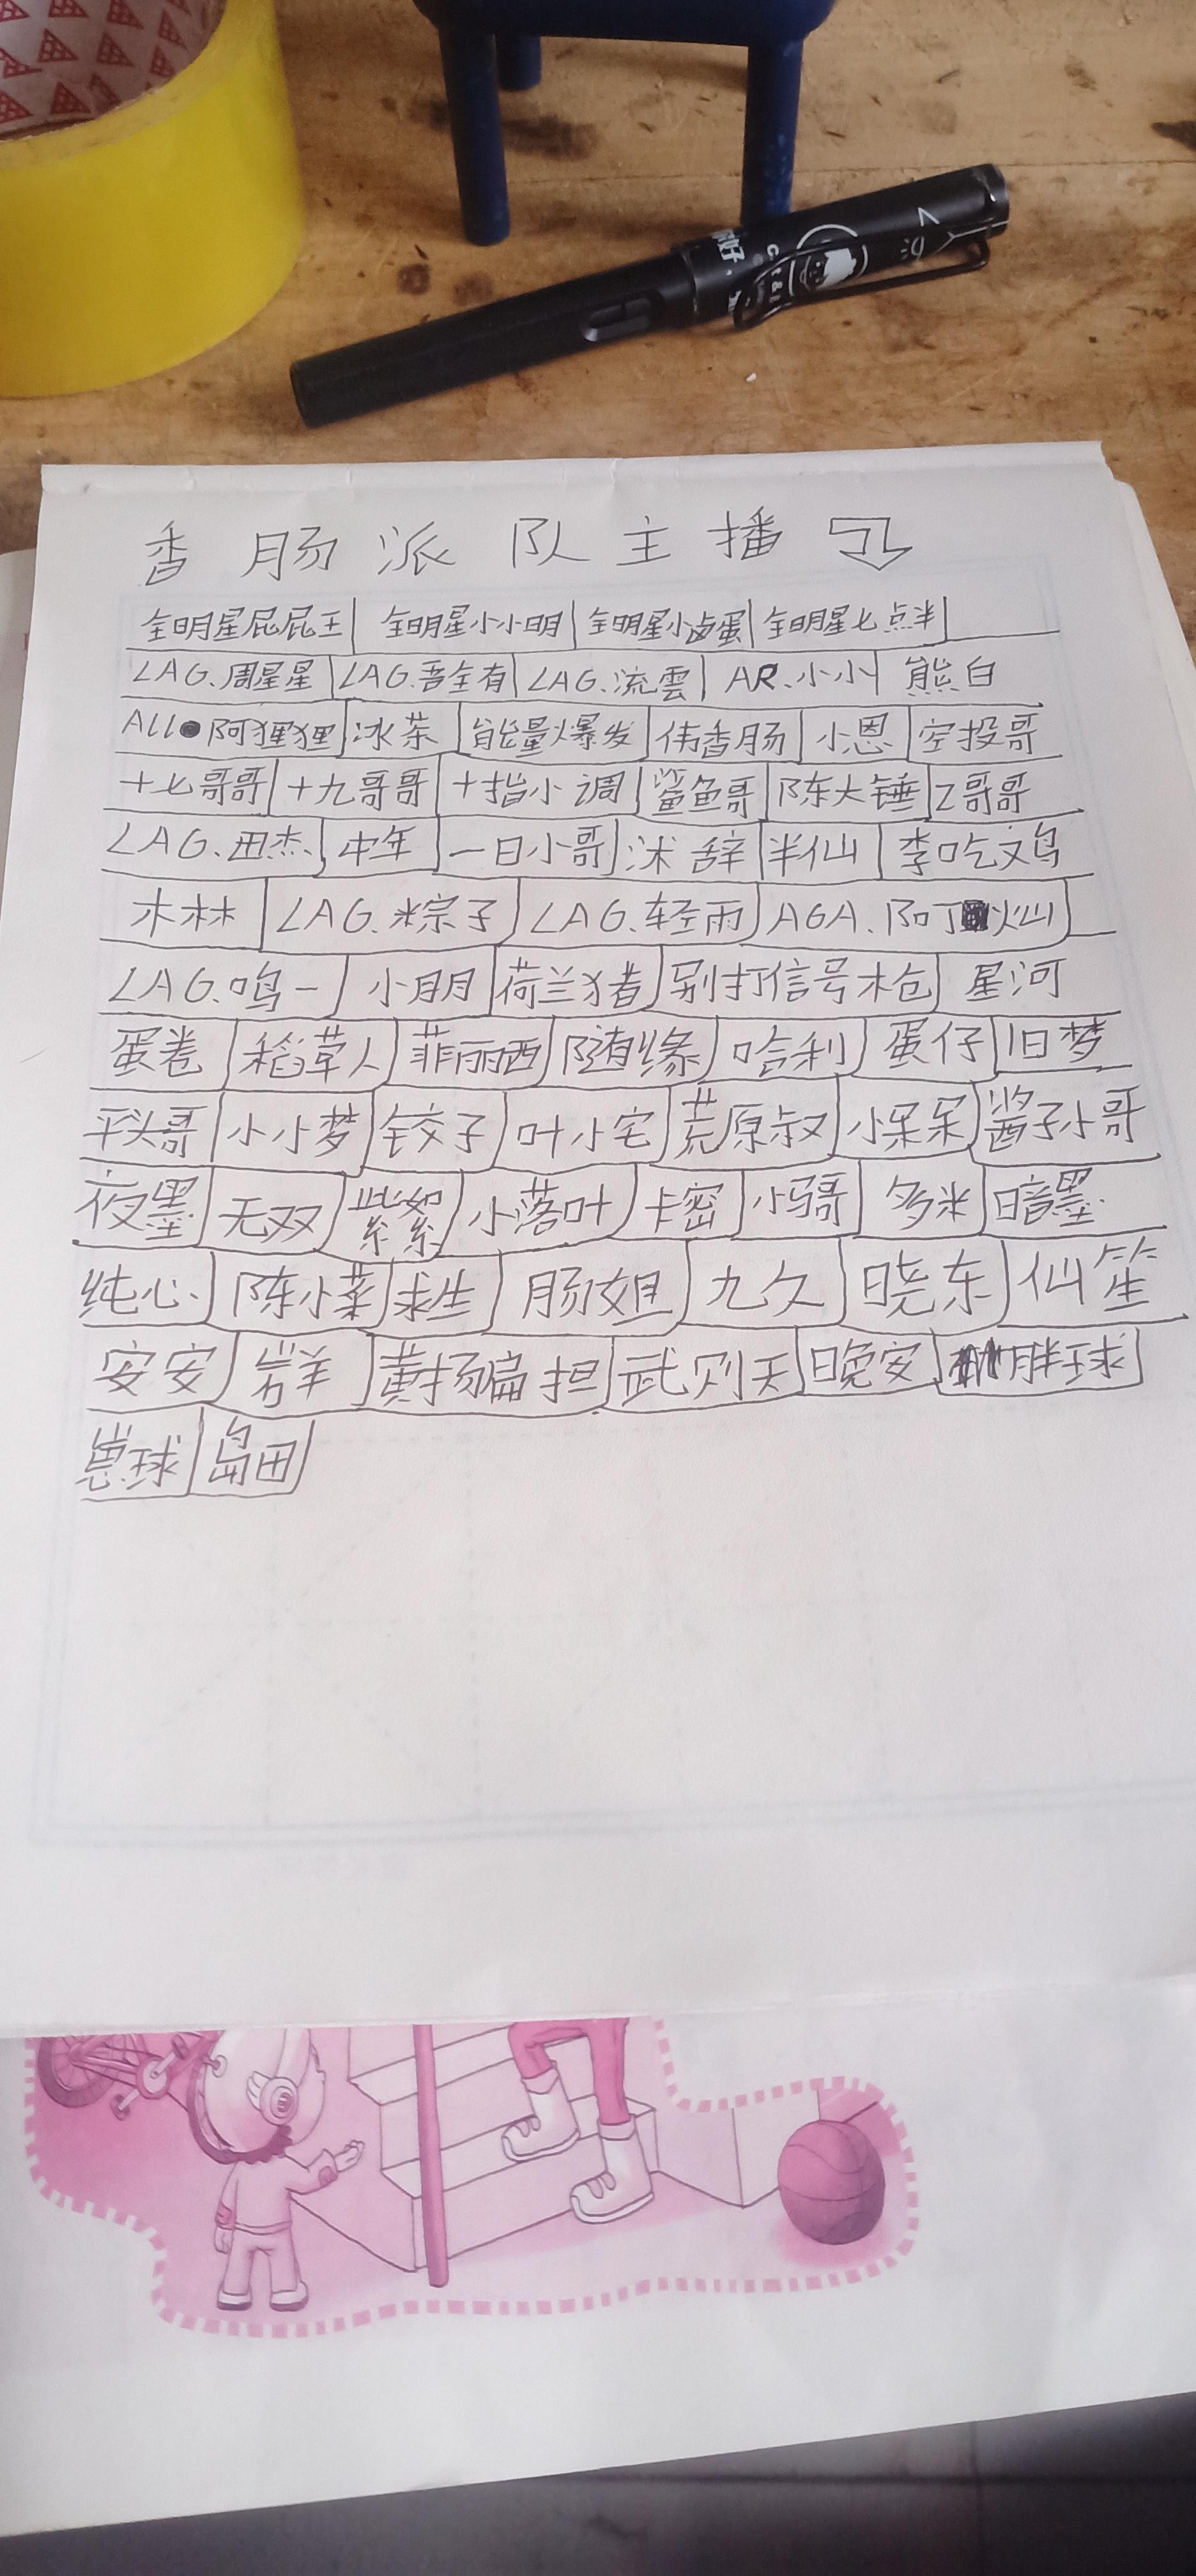 你好.
香肠派队主播
全明星屁屁王 全明星小小明 全明星小卤蛋 全明星七点半
LAG.周星星 LAG.吾全有 LAG.流雲 AR.小小 熊白
ALL●阿狸狸 冰茶 能量爆发 伟香肠 小恩 空投哥
十七哥哥 十九哥哥 十指小调 鲨鱼哥 陈大锤 Z哥哥
LAG.田杰 中年 一日小哥 沭辞 半仙 李吃鸡
木林 LAG.粽子 LAG.轻雨 AGA.阿灿
LAG.鸣一 小朋 荷兰猪 别打信号枪 星河
蛋卷 稻草人 菲丽西 随缘 哈利 蛋仔 旧梦
平头哥 小小梦 铰子 叶小宅 荒原叔 小呆呆 酱子小哥
夜墨 无双 紫絮 小落叶 卡密 小骑 多米 暗墨
纯心 陈小菜 求生 肠姐 九久 晓东 仙笙
安安 黄扬扁担 武则天 晚安 胖球
球 岛田